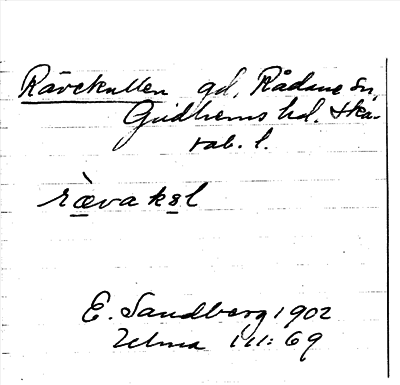 Rävekullen gd, Rådane sn,
Gudhems hd. Ska-
rab. l.
rævaksl
E. Sandberg 1902
111: 69